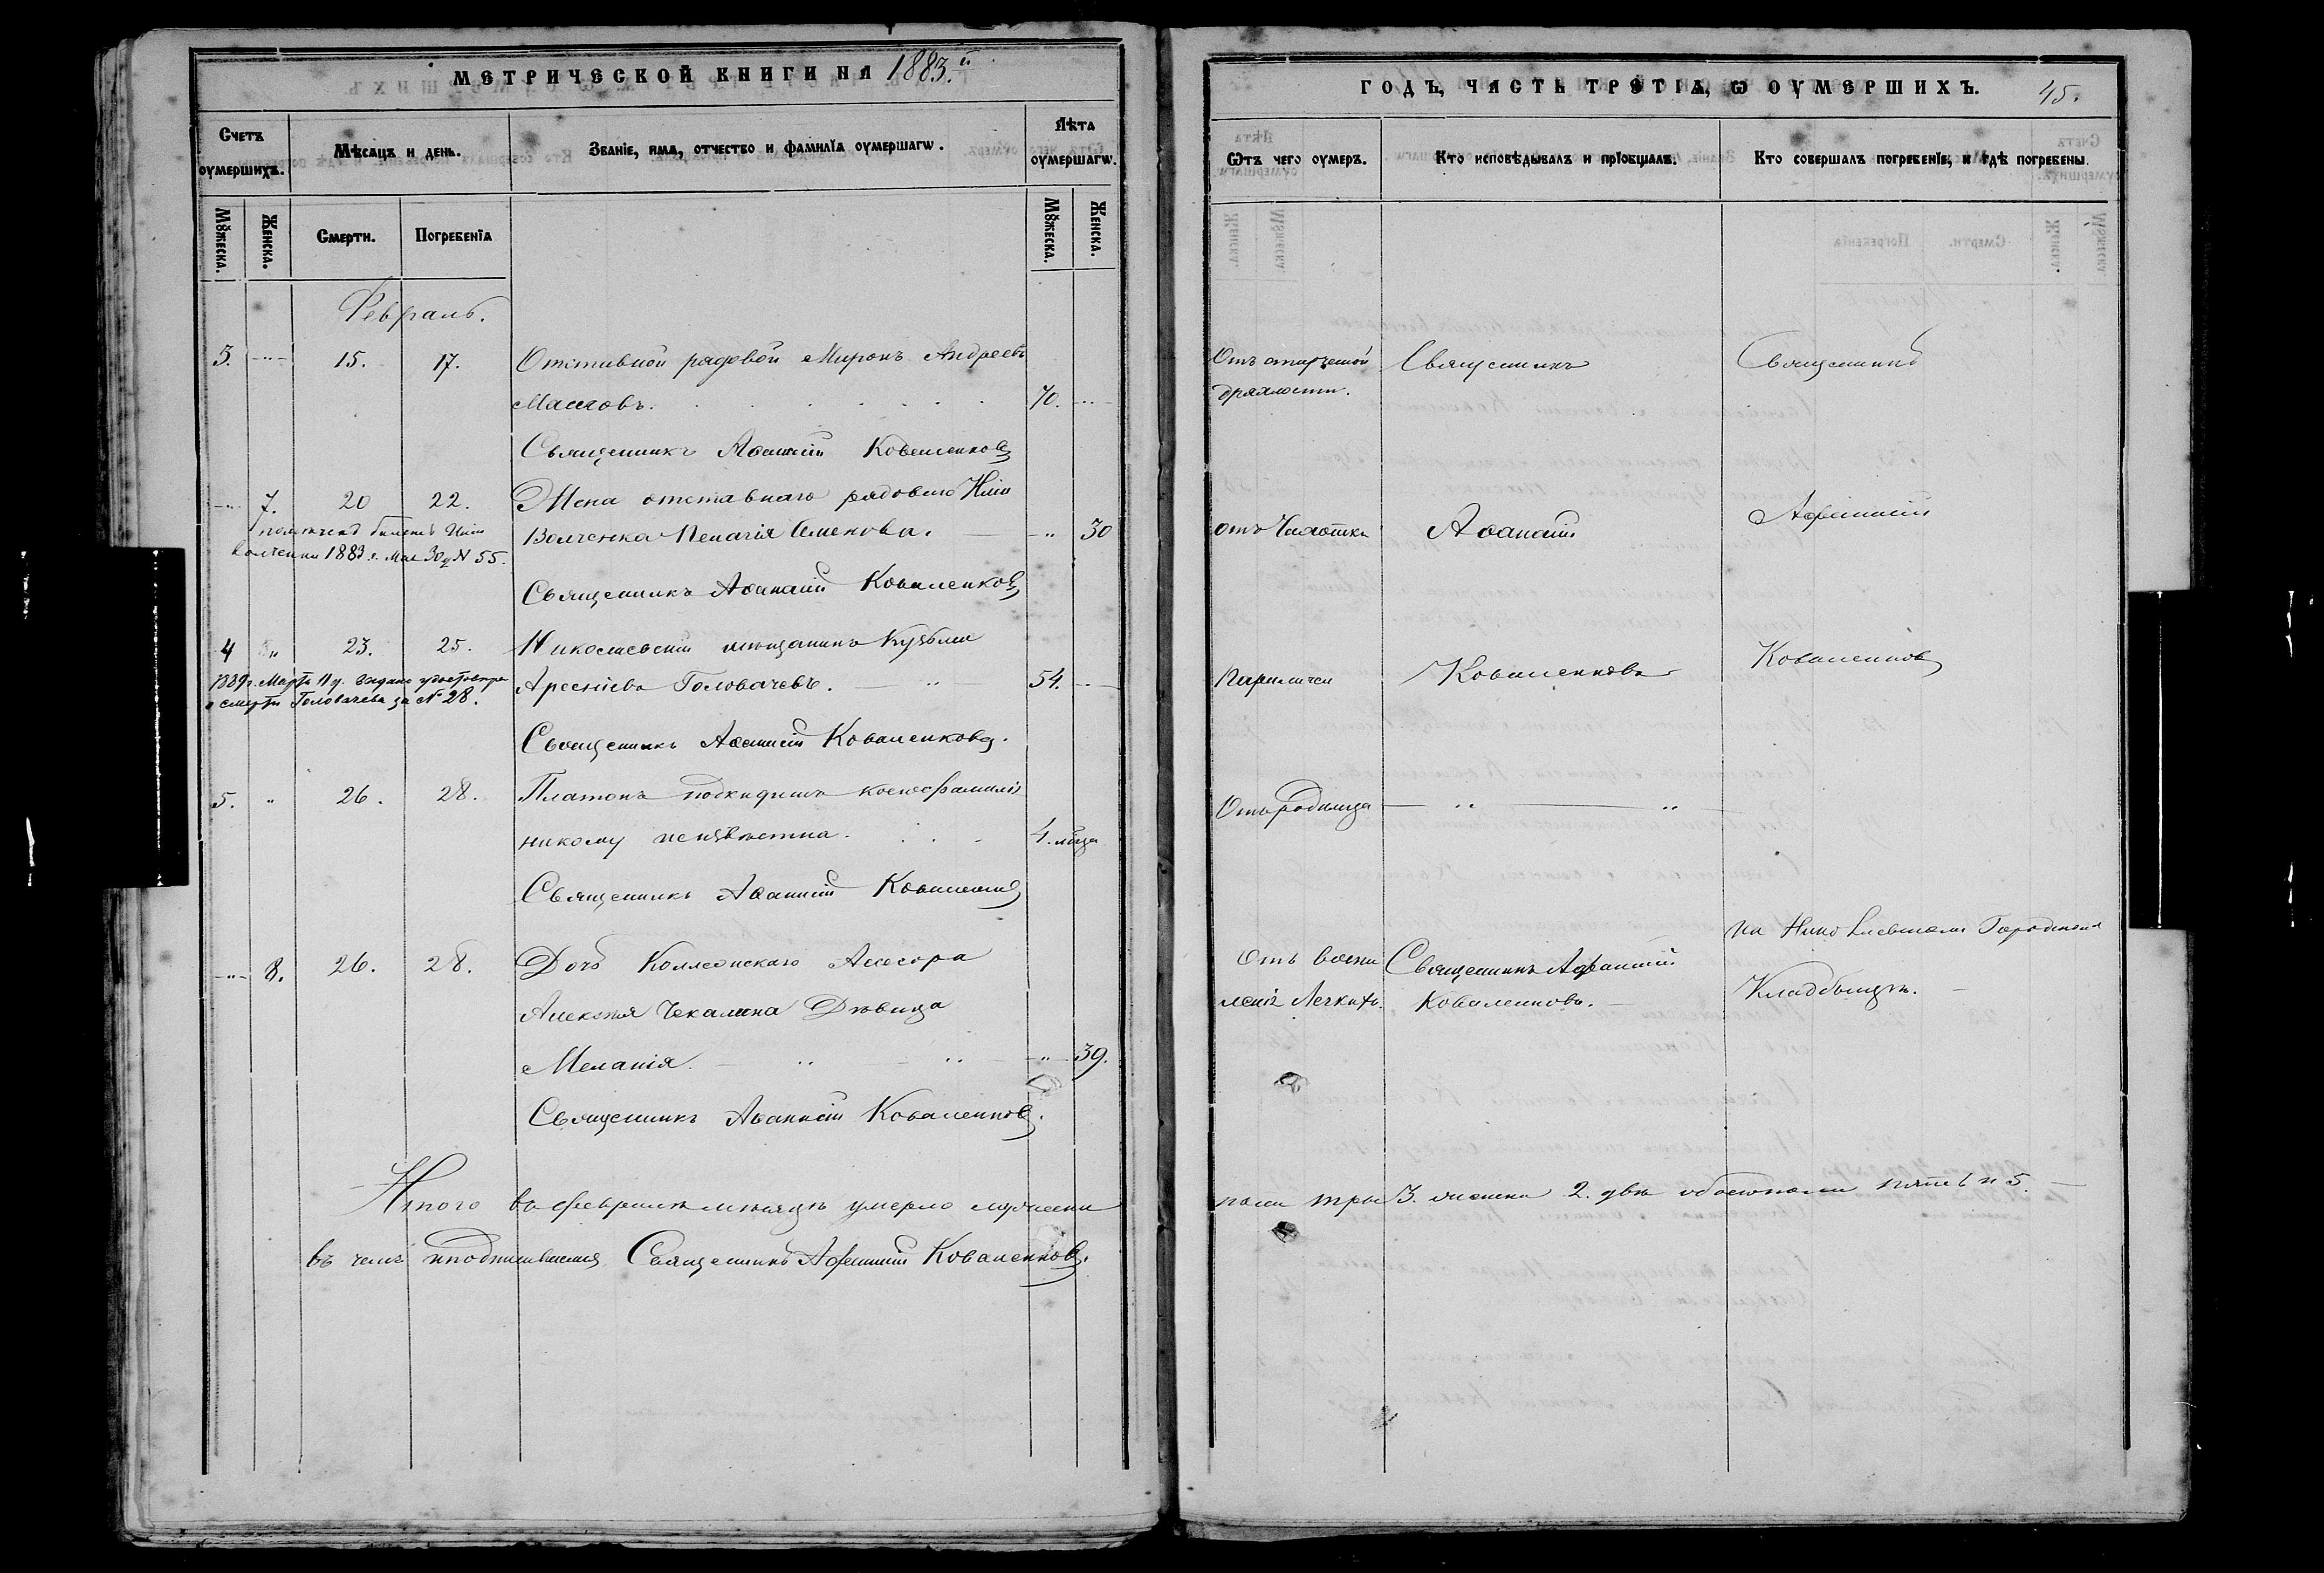 МЕТРИЧЕСКОЙ КНИГИ НА 1883.й
Счетъ оумершихъ.
Мѣсяцъ и день.
Званіе, имя, отчество и фамилія оумершагѡ.
Лѣта оумершагѡ.
Мꙋжеска.
Женска.
Смерти.
Погребенїѧ
Мꙋжеска.
Женска.
Февраль.
3. 15. 17. Отставной рядовой Миронъ Андреевъ
70.
Священникъ Аѳанасій Коваленковъ
7. 20 22. Жена отставнаго рядоваго
Волченка Пелагія Семенова. 30
1883 г. Мая 30 д N 55.
Священникъ Аѳанасій Коваленковъ
4 " 23. 25. Николаевскій мѣщанинъ Кузьма
Арсеніевъ Головачевъ. 54.
1889 г. Марта 11 д. выдано удостовѣре
о смерти Головачева за N 28.
Священникъ Аѳанасій Коваленковъ.
5. " 26. 28. Платонъ подкидышъ коего фамилія
никому неизвѣстна. 4. мѣсца
Священникъ Аѳанасій Коваленковъ
8. 26. 28. Дочь Коллежскаго Асесора
Алексѣя Чекалина Дѣвица
Меланія. " 39.
Священникъ Аѳанасій Коваленковъ.
Итого въ февралѣ мѣсяцѣ умерло мужеска
въ чемъ и подписываемся Священникъ Афанасій Коваленковъ.
ГОДЪ, ЧАСТЬ ТРЕТІѦ, Ѡ ОУМЕРШИХЪ. 45.
Ѿтъ чего оумеръ.
Кто исповѣдывалъ и прїобщалъ.
Кто совершалъ погребенїе, и гдѣ погребены.
Отъ старческой Священникъ Священникъ
дряхлости.
отъ Чахотки Аѳанасій Афанасій
Паралича Коваленковъ Коваленковъ
Отъ родимца
на Николаевскомъ Городскомъ
Отъ воспа Священникъ Афанасій
ленія Легкихъ. Коваленковъ. Кладбищѣ.
пола три 3. женска 2. двѣ обоего пола пять 5.